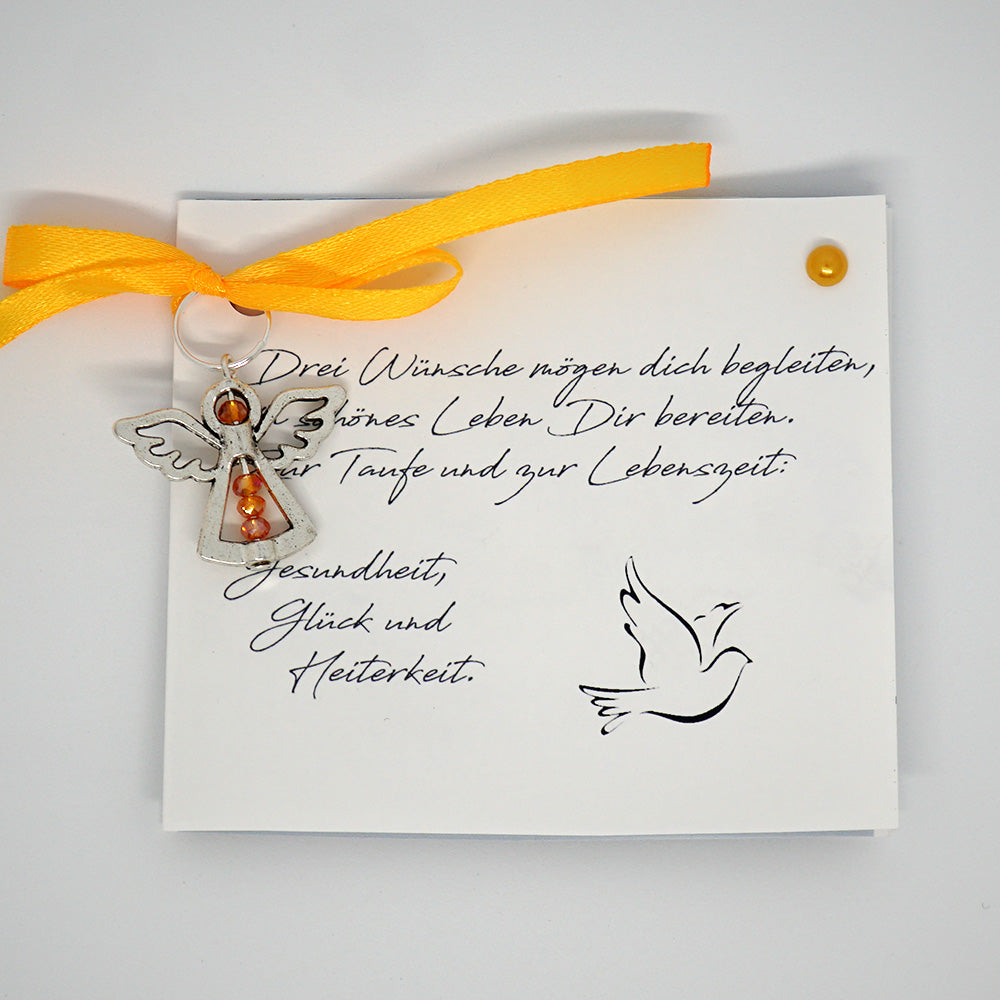 Drei Wünsche mögen dich begleiten,
schönes Leben Dir bereiten.
Zur Taufe und zur Lebenszeit:
Gesundheit,
Glück und
Heiterkeit.